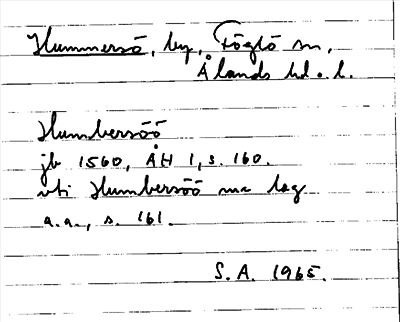 Hummersö, by, Föglö sn,
Ålands hd o. l.
Humbersöö
jb 1560, ÅH 1, s. 160.
uti Humbersöö ma lag
a.a., s. 161.
S.A. 1965.